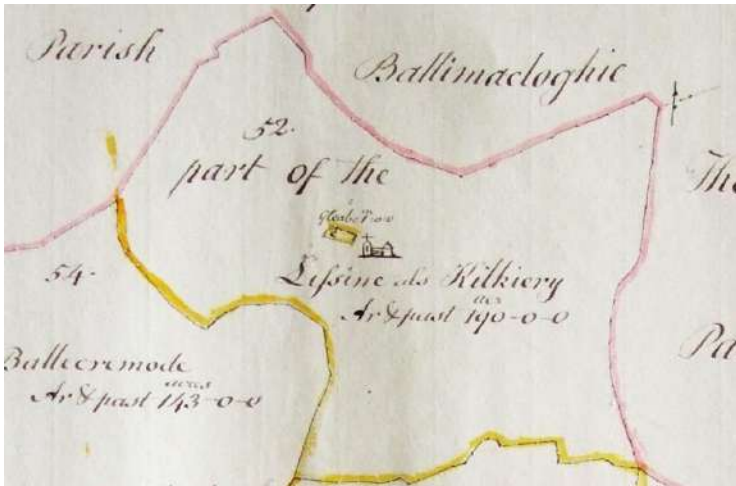 Parish
Ballimacloghie
52.
part of the
The
Gleabe
54.
Lissine als Kilkiery
acres
Ar & past 190-0-0
Pa
Ballecremode
acres
Ar & past 143-0-0